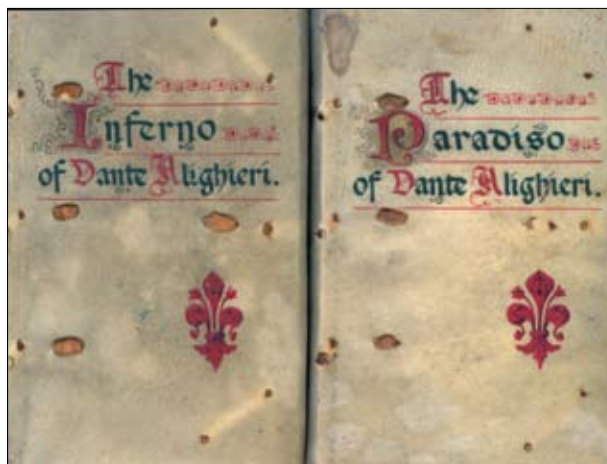 The
Inferno
of Dante Alighieri.
The
Paradiso
of Dante Alighieri.